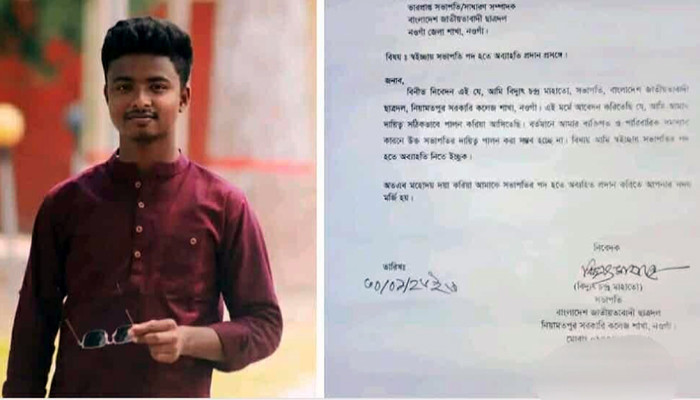 ভারপ্রাপ্ত সভাপতি/সাধারণ সম্পাদক
বাংলাদেশ জাতীয়তাবাদী ছাত্রদল
নওগাঁ জেলা শাখা, নওগাঁ।
বিষয় : স্বইচ্ছায় সভাপতি পদ হতে অব্যাহতি প্রদান প্রসঙ্গে।
জনাব,
বিনীত নিবেদন এই যে, আমি বিদ্যুৎ চন্দ্র মাহাতো, সভাপতি, বাংলাদেশ জাতীয়তাবাদী
ছাত্রদল, নিয়ামতপুর সরকারি কলেজ শাখা, নওগাঁ। এই মর্মে আবেদন করিতেছি যে, আমি আমার
দায়িত্ব সঠিকভাবে পালন করিয়া আসিতেছি। বর্তমানে আমার ব্যক্তিগত ও পারিবারিক সমস্যার
কারনে উক্ত সভাপতির দায়িত্ব পালন করা সম্ভব হচ্ছে না। বিধায় আমি স্বইচ্ছায় সভাপতির পদ
হতে অব্যাহতি নিতে ইচ্ছুক।
অতএব মহোদয় দয়া করিয়া আমাকে সভাপতির পদ হতে অব্যহিত প্রদান করিতে আপনার সদয়
মর্জি হয়।
নিবেদক
তারিখঃ
(বিদ্যুৎ চন্দ্র মাহাতো)
সভাপতি
বাংলাদেশ জাতীয়তাবাদী ছাত্রদল
নিয়ামতপুর সরকারি কলেজ শাখা, নওগাঁ।